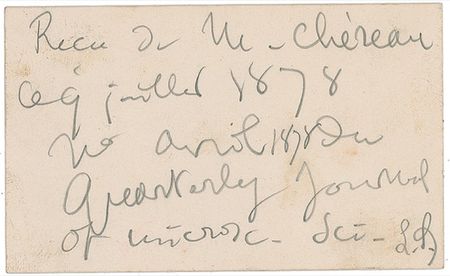 Recu de M. Chéreau
Ce 9 juillet 1878
No avril 1878 du
Quearkerly Journal
of microsc. Sci -